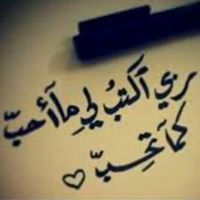 ربي اكتب لي ما أحب
كما تحب ♡